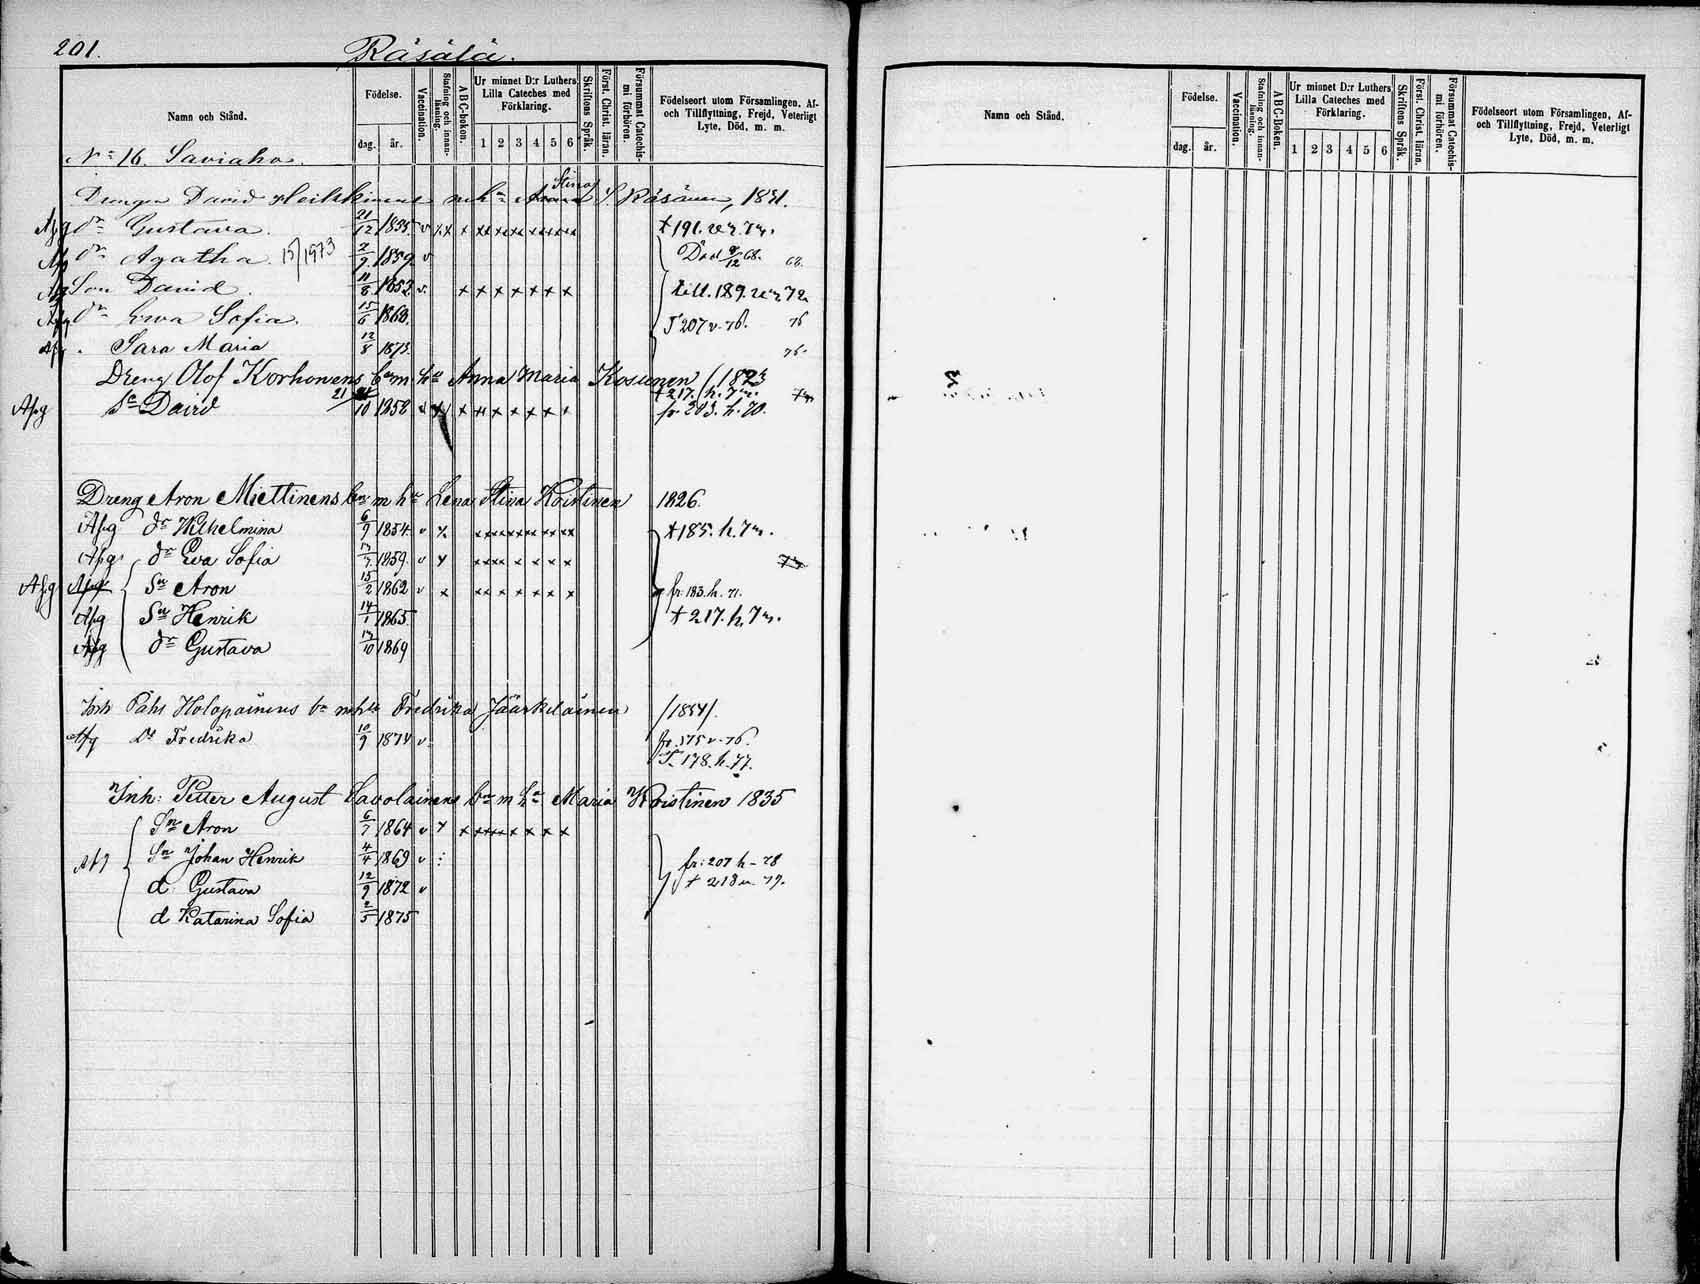 201. Räsälä.
Namn och Stånd.
Födelse.
dag. år.
Vaccination.
Stafning och innanläsning.
A B C-boken.
Ur minnet D:r Luthers Lilla Cateches med Förklaring.
1 2 3 4 5 6
Skriftens Språk.
Först. Christ. läran.
Försummat Catechismi förhören.
Födelseort utom Församlingen, Af- och Tillflyttning, Frejd, Veterligt Lyte, Död, m. m.
N:o 16. Saviaho.
Drengen David Heikkinens Stina Räsänen, 1831.
dr Gustava. 21/12 1855 v x x x xx xx xx xx xx xx
dr Agatha. 15/1973 2/9 1859 v Död 9/12 68. 68.
Son David. 11/8 1853 v. x x x x x x x till. 189. 72
dr Ewa Sofia. 15/6 1868. T 207 v. 76. 76
Sara Maria 12/8 1873. 76.
Dreng Olof Korhonens barn m hu Anna Maria Kosunen /1823
† 217. h. 7
Afg Sn David 21/10 1858 x x x x x x x x fr 203. h. 70.
Dreng Aron Miettinens bn m hu Lena Stina Koistinen 1826.
Afg dr Wilhelmina 6/9 1854. v x xx xx xx xx xx xx
† 185. h. 7
Afg dr Eva Sofia 1859. v x xx xx x x x x
Afg Sn Aron 15/2 1862 v x xx x x x x x fr. 183. h. 71.
Afg Sn Henrik 14/1 1865. † 217. h. 7
Afg dr Gustava 10 1869
Inh Påhl Holopainens bn m hu Fredrika Jääskeläinen /1854/.
Afg Dr Fredrika 10/9 1874 v fr. 375 v. 76.
T. 178. h. 77.
Inh: Petter August Savolainens bn m hu Maria Koistinen 1835
Sn Aron 6/7 1864 v x x xx xx x x x x
Afg Sn Johan Henrik 4/4 1869 v fr: 207 h - 78
d. Gustava 12/9 1872 v † 218 79.
d Katarina Sofia 2/5 1875
Namn och Stånd.
Födelse.
dag. år.
Vaccination.
Stafning och innanläsning.
A B C-Boken.
Ur minnet D:r Luthers Lilla Cateches med Förklaring.
1 2 3 4 5 6
Skriftens Språk.
Först. Christ. läran.
Försummat Catechismi förhören.
Födelseort utom Församlingen, Af- och Tillflyttning, Frejd, Veterligt Lyte, Död, m. m.